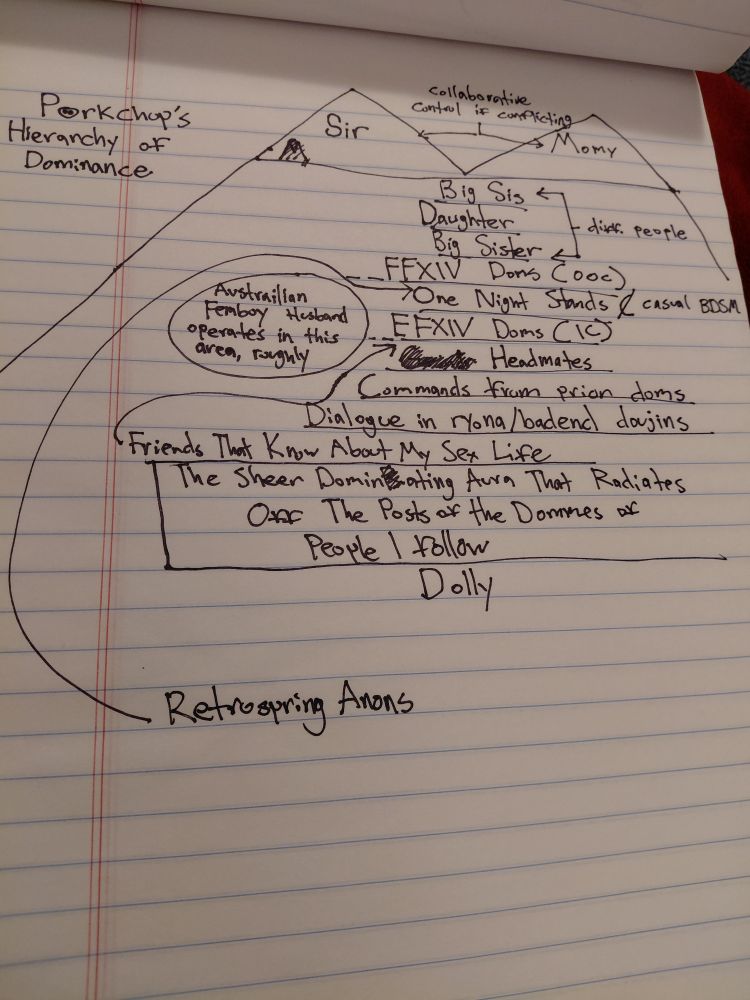 Porkchop's
Hierarchy of
Dominance
collaborative
control if conflicting
Sir
Momy
Big Sis
Daughter
Big Sister
diff. people
FFXIV Doms (ooc)
One Night Stands / casual BDSM
FFXIV Doms (IC)
Australian
Femboy Husband
operates in this
area, roughly
Headmates
Commands from prior doms
Dialogue in ryona/badend doujins
Friends That Know About My Sex Life
The Sheer Dominating Aura That Radiates
Off The Posts of the Dommes of
People I follow
Dolly
Retrospring Anons